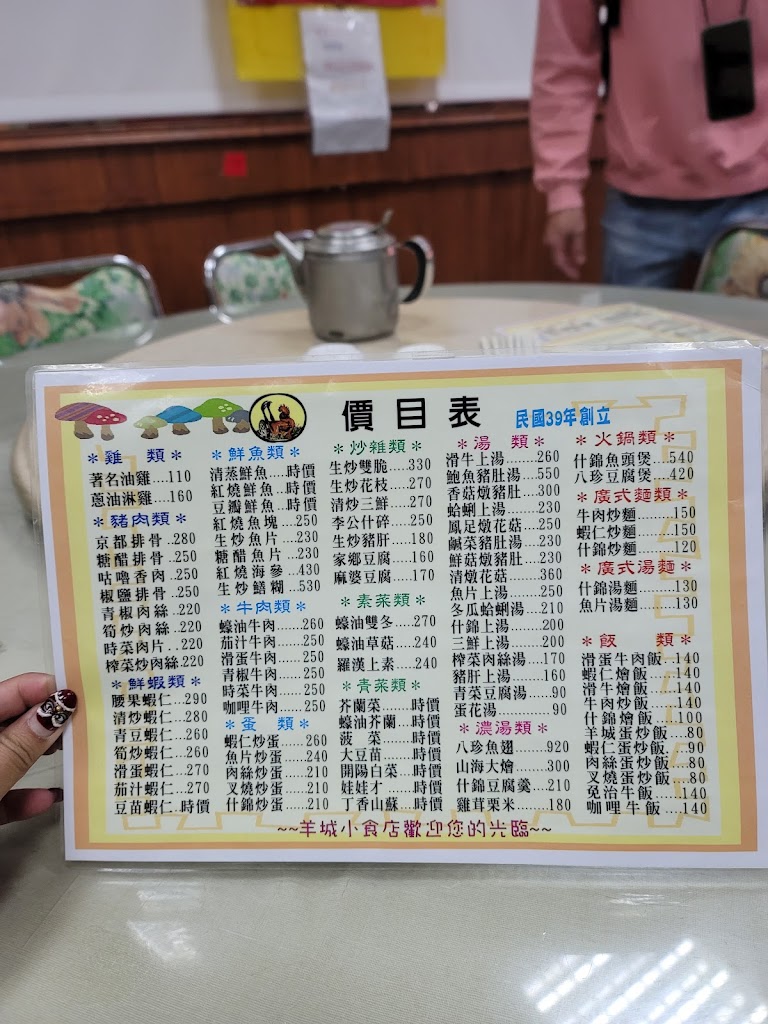 價目表
民國39年創立
＊雞　類＊
著名油雞....110
蔥油淋雞....160
＊豬肉類＊
京都排骨.280
糖醋排骨.250
咕嚕香肉.250
椒鹽排骨.250
青椒肉絲.220
筍炒肉絲.220
時菜肉片..220
榨菜炒肉絲.220
＊鮮蝦類＊
腰果蝦仁..290
清炒蝦仁..280
青豆蝦仁..260
筍炒蝦仁..260
滑蛋蝦仁..270
茄汁蝦仁..270
豆苗蝦仁.時價
＊鮮魚類＊
清蒸鮮魚....時價
紅燒鮮魚....時價
豆瓣鮮魚....時價
紅燒魚塊....250
生炒魚片....230
糖醋魚片....230
紅燒海參....430
生炒鱔糊...530
＊牛肉類＊
蠔油牛肉......260
茄汁牛肉......250
滑蛋牛肉......250
青椒牛肉......250
時菜牛肉......250
咖哩牛肉......250
＊蛋　類＊
蝦仁炒蛋......260
魚片炒蛋......240
肉絲炒蛋......210
叉燒炒蛋......210
什錦炒蛋......210
＊炒雜類＊
生炒雙脆.....330
生炒花枝.....270
清炒三鮮.....270
李公什碎.....250
生炒豬肝.....180
家鄉豆腐.....160
麻婆豆腐.....170
＊素菜類＊
蠔油雙冬....270
蠔油草菇....240
羅漢上素....240
＊青菜類＊
芥蘭菜.......時價
蠔油芥蘭...時價
菠　菜.......時價
大豆苗.......時價
開陽白菜...時價
娃娃才.......時價
丁香山蘇...時價
＊湯　類＊
滑牛上湯.......260
鮑魚豬肚湯...550
香菇燉豬肚...300
蛤蜊上湯.......230
鳳足燉花菇...250
鹹菜豬肚湯...230
鮮菇燉豬肚...230
清燉花菇.......360
魚片上湯.......250
冬瓜蛤蜊湯...210
什錦上湯.......200
三鮮上湯.......200
榨菜肉絲湯...170
豬肝上湯.......160
青菜豆腐湯...90
蛋花湯..........90
＊濃湯類＊
八珍魚翅......920
山海大燴......300
什錦豆腐羹...210
雞茸栗米......180
＊火鍋類＊
什錦魚頭煲...540
八珍豆腐煲...420
＊廣式麵類＊
牛肉炒麵.......150
蝦仁炒麵.......150
什錦炒麵.......120
＊廣式湯麵＊
什錦湯麵.......130
魚片湯麵.......130
＊飯　類＊
滑蛋牛肉飯..140
蝦仁燴飯.....140
滑牛燴飯.....140
牛肉炒飯.....140
什錦燴飯.....100
羊城蛋炒飯...80
蝦仁蛋炒飯..90
肉絲蛋炒飯...80
叉燒蛋炒飯...80
免治牛飯.....140
咖哩牛飯.....140
~~羊城小食店歡迎您的光臨~~